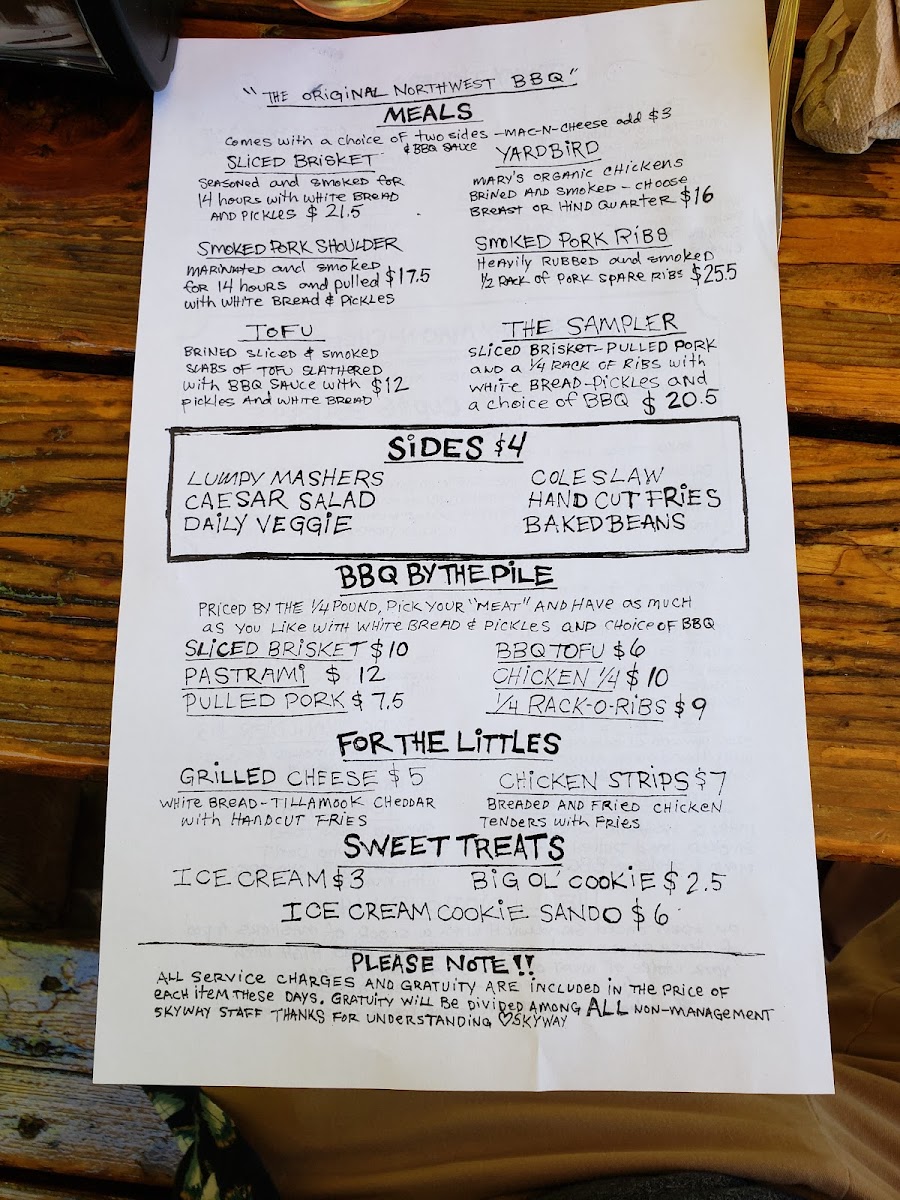 "THE ORIGINAL NORTHWEST BBQ"
MEALS
COMES WITH A CHOICE OF TWO SIDES - MAC-N-CHEESE ADD $3
& BBQ SAUCE
SLICED BRISKET
SEASONED AND SMOKED FOR
14 HOURS WITH WHITE BREAD
AND PICKLES $ 21.5
YARDBIRD
MARY'S ORGANIC CHICKENS
BRINED AND SMOKED - CHOOSE
BREAST OR HIND QUARTER $16
SMOKED PORK SHOULDER
MARINATED AND SMOKED
FOR 14 HOURS AND PULLED $17.5
WITH WHITE BREAD & PICKLES
SMOKED PORK RIBS
HEAVILY RUBBED AND SMOKED
1/2 RACK OF PORK SPARE RIBS $25.5
TOFU
BRINED SLICED & SMOKED
SLABS OF TOFU SLATHERED
WITH BBQ SAUCE WITH $12
PICKLES AND WHITE BREAD
THE SAMPLER
SLICED BRISKET - PULLED PORK
AND A 1/4 RACK OF RIBS WITH
WHITE BREAD - PICKLES AND
A CHOICE OF BBQ $ 20.5
SIDES $4
LUMPY MASHERS
CAESAR SALAD
DAILY VEGGIE
COLESLAW
HAND CUT FRIES
BAKED BEANS
BBQ BY THE PILE
PRICED BY THE 1/4 POUND, PICK YOUR "MEAT" AND HAVE AS MUCH
AS YOU LIKE WITH WHITE BREAD & PICKLES AND CHOICE OF BBQ
SLICED BRISKET $10
PASTRAMI $ 12
PULLED PORK $ 7.5
BBQ TOFU $6
CHICKEN 1/4 $ 10
1/4 RACK-O-RIBS $9
FOR THE LITTLES
GRILLED CHEESE $5
WHITE BREAD - TILLAMOOK CHEDDAR
WITH HANDCUT FRIES
CHICKEN STRIPS $7
BREADED AND FRIED CHICKEN
TENDERS WITH FRIES
SWEET TREATS
ICE CREAM $3
BIG OL' COOKIE $ 2.5
ICE CREAM COOKIE SANDO $ 6
PLEASE NOTE!!
ALL SERVICE CHARGES AND GRATUITY ARE INCLUDED IN THE PRICE OF
EACH ITEM THESE DAYS. GRATUITY WILL BE DIVIDED AMONG ALL NON-MANAGEMENT
SKYWAY STAFF THANKS FOR UNDERSTANDING ♡SKYWAY